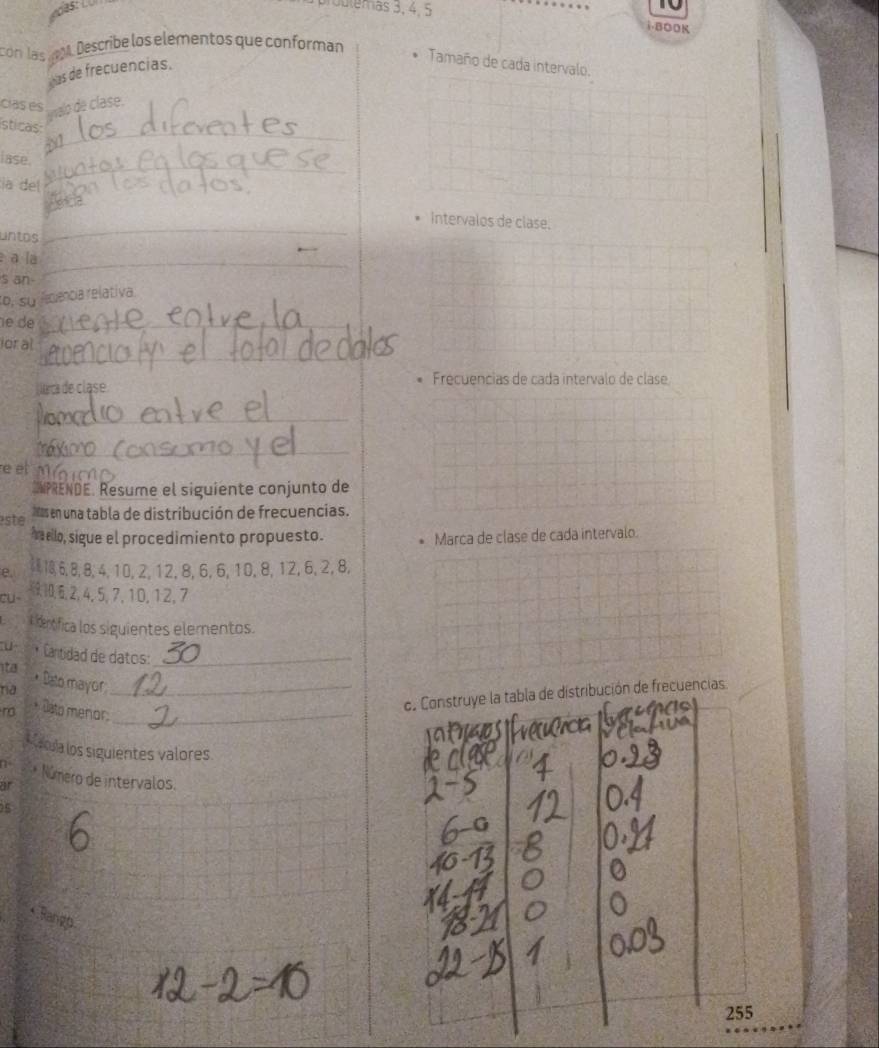 problemas 3, 4, 5
i-BOOK
con las
Describe los elementos que conforman
de frecuencias.
cias es
de clase.
ísticas:
los diferentes
lase.
en las que se
ia del
los datos.
untos
e a la
s an-
o, su
relativa.
e de
entre la
ior al
y el total de datos
de clase
entre el
máximo consumo y el
re el
mínimo
Resume el siguiente conjunto de
este
en una tabla de distribución de frecuencias.
ello, sigue el procedimiento propuesto.
e.
10, 6, 8, 8, 4, 10, 2, 12, 8, 6, 6, 10, 8, 12, 6, 2, 8,
cu-
10, 6, 2, 4, 5, 7, 10, 12, 7
Identifica los siguientes elementos.
• Cantidad de datos: 30
• Dato mayor: 12
• Dato menor: 2
Calcula los siguientes valores.
• Número de intervalos.
6
• Rango.
12-2=10
• Tamaño de cada intervalo.
• Intervalos de clase.
• Frecuencias de cada intervalo de clase.
• Marca de clase de cada intervalo.
c. Construye la tabla de distribución de frecuencias.
intervalos frecuencia frecuencia
de clase relativa
2-5 7 0.23
6-9 12 0.4
10-13 8 0.27
14-17 0 0
18-21 0 0
22-25 1 0.03
255